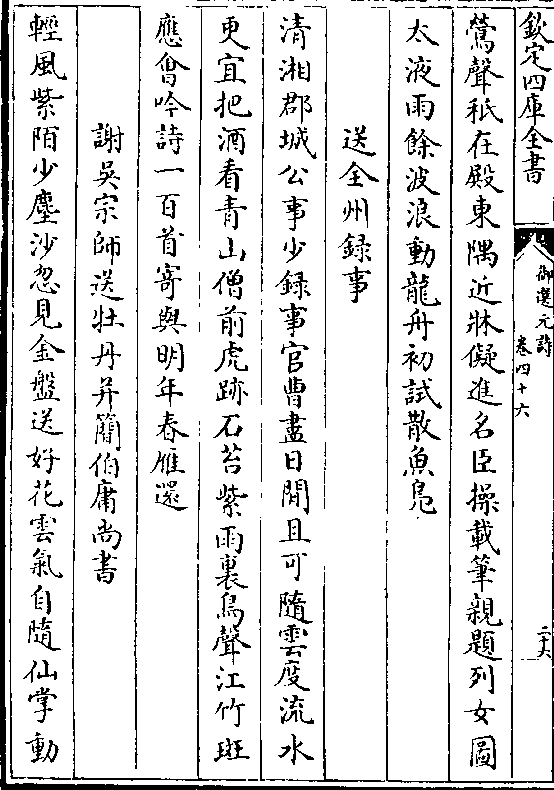 欽定四庫全書
御選元詩
卷四十六
二十六
鶯聲秖在殿東隅近牀儗進名臣操載筆親題列女圖
太液雨餘波浪動龍舟初試散魚鳬
送全州録事
清湘郡城公事少録事官曹盡日閒且可隨雲度流水
更宜把酒看青山僧前虎跡石苔紫雨裏鳥聲江竹斑
應㑹吟詩一百首寄與明年春雁還
謝吳宗師送牡丹并簡伯庸尚書
輕風紫陌少塵沙忽見金盤送好花雲氣自隨仙掌動